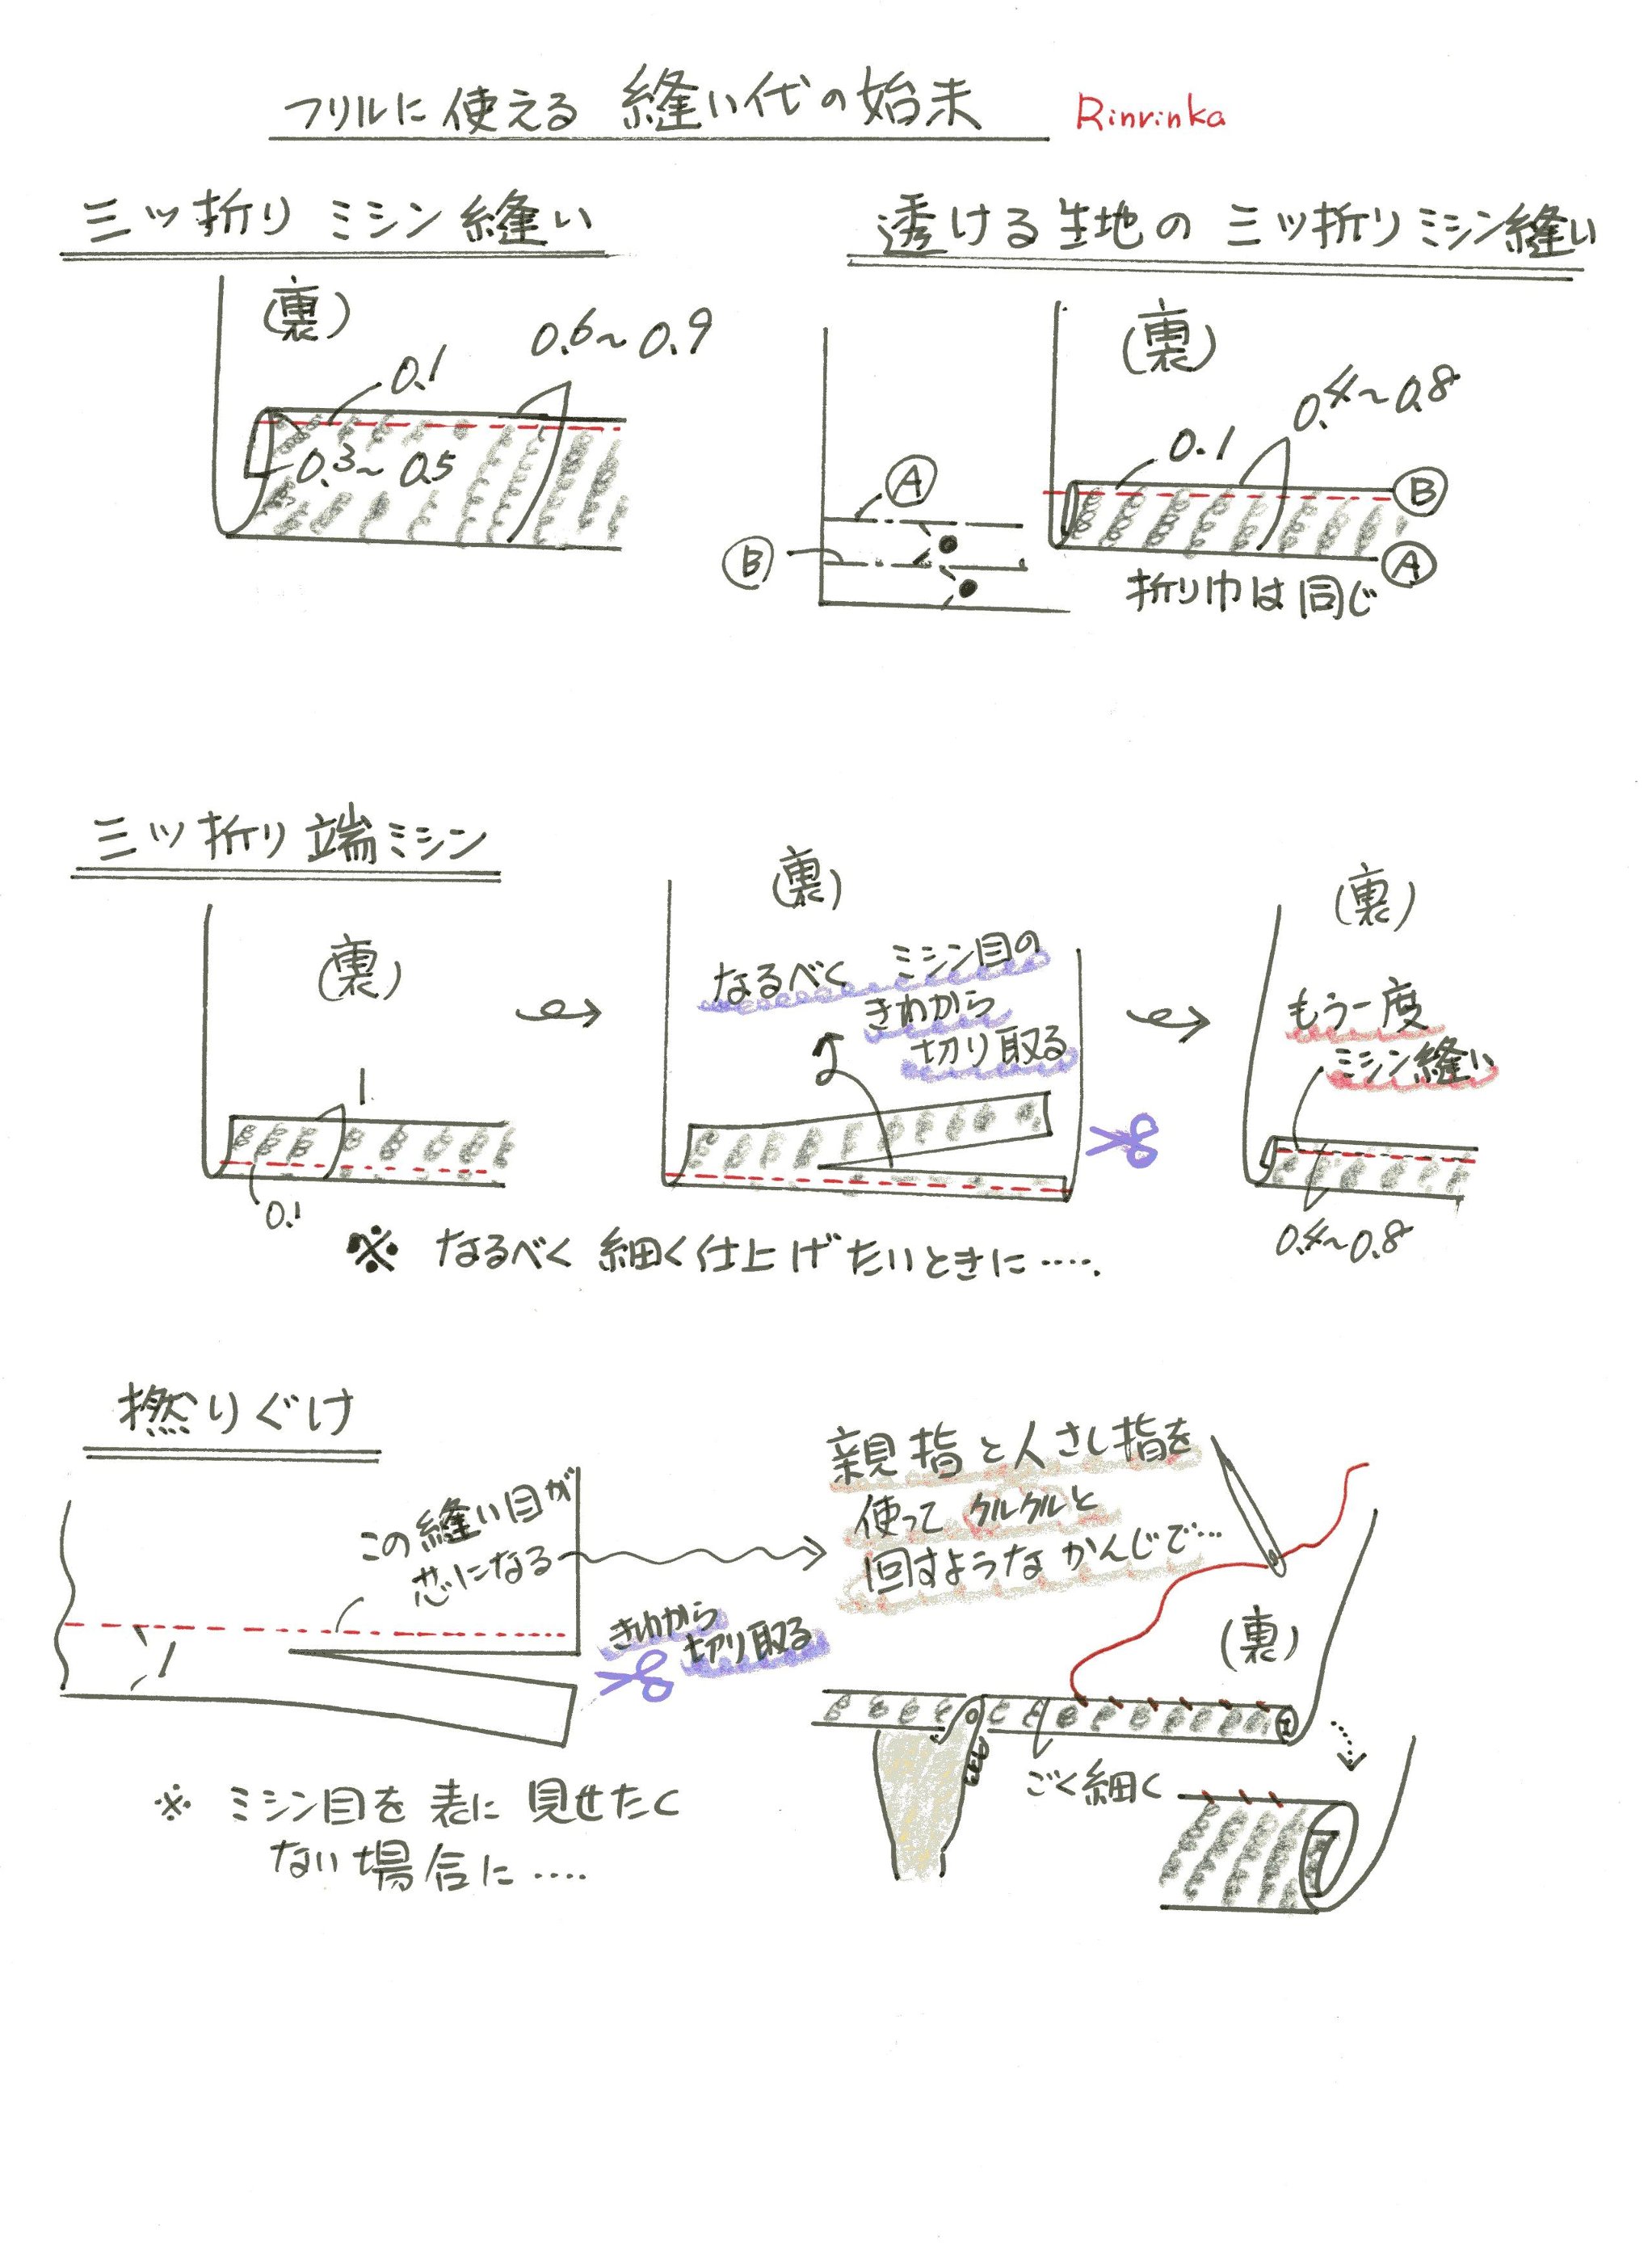 フリルに使える 縫い代の始末 Rinrinka
三ツ折り ミシン縫い
(裏)
0.1
0.6~0.9
0.3~0.5
透ける生地の 三ツ折りミシン縫い
(裏)
0.4~0.8
0.1
Ⓐ
Ⓑ
Ⓑ
Ⓐ
折り巾は同じ
三ツ折り端ミシン
(裏)
1
0.1
(裏)
なるべく ミシン目の
きわから
切り取る
(裏)
もう一度
ミシン縫い
0.4~0.8
※ なるべく 細く仕上げたいときに‥‥.
撚りぐけ
この縫い目が
芯になる
1
きわから
切り取る
※ ミシン目を 表に 見せたく
ない場合に‥‥
親指と人さし指を
使って クルクルと
回すような かんじで…
(裏)
ごく細く